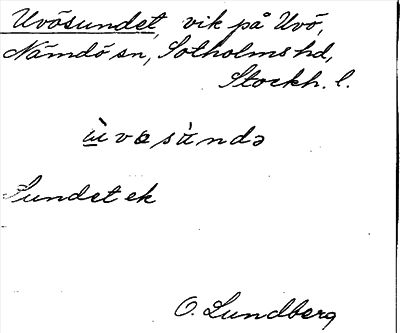 Uvösundet, vik på Uvö,
Nämdö sn, Sotholms hd,
Stockh. l.
ὺvøsὺndə
Sundet ek
O. Lundberg